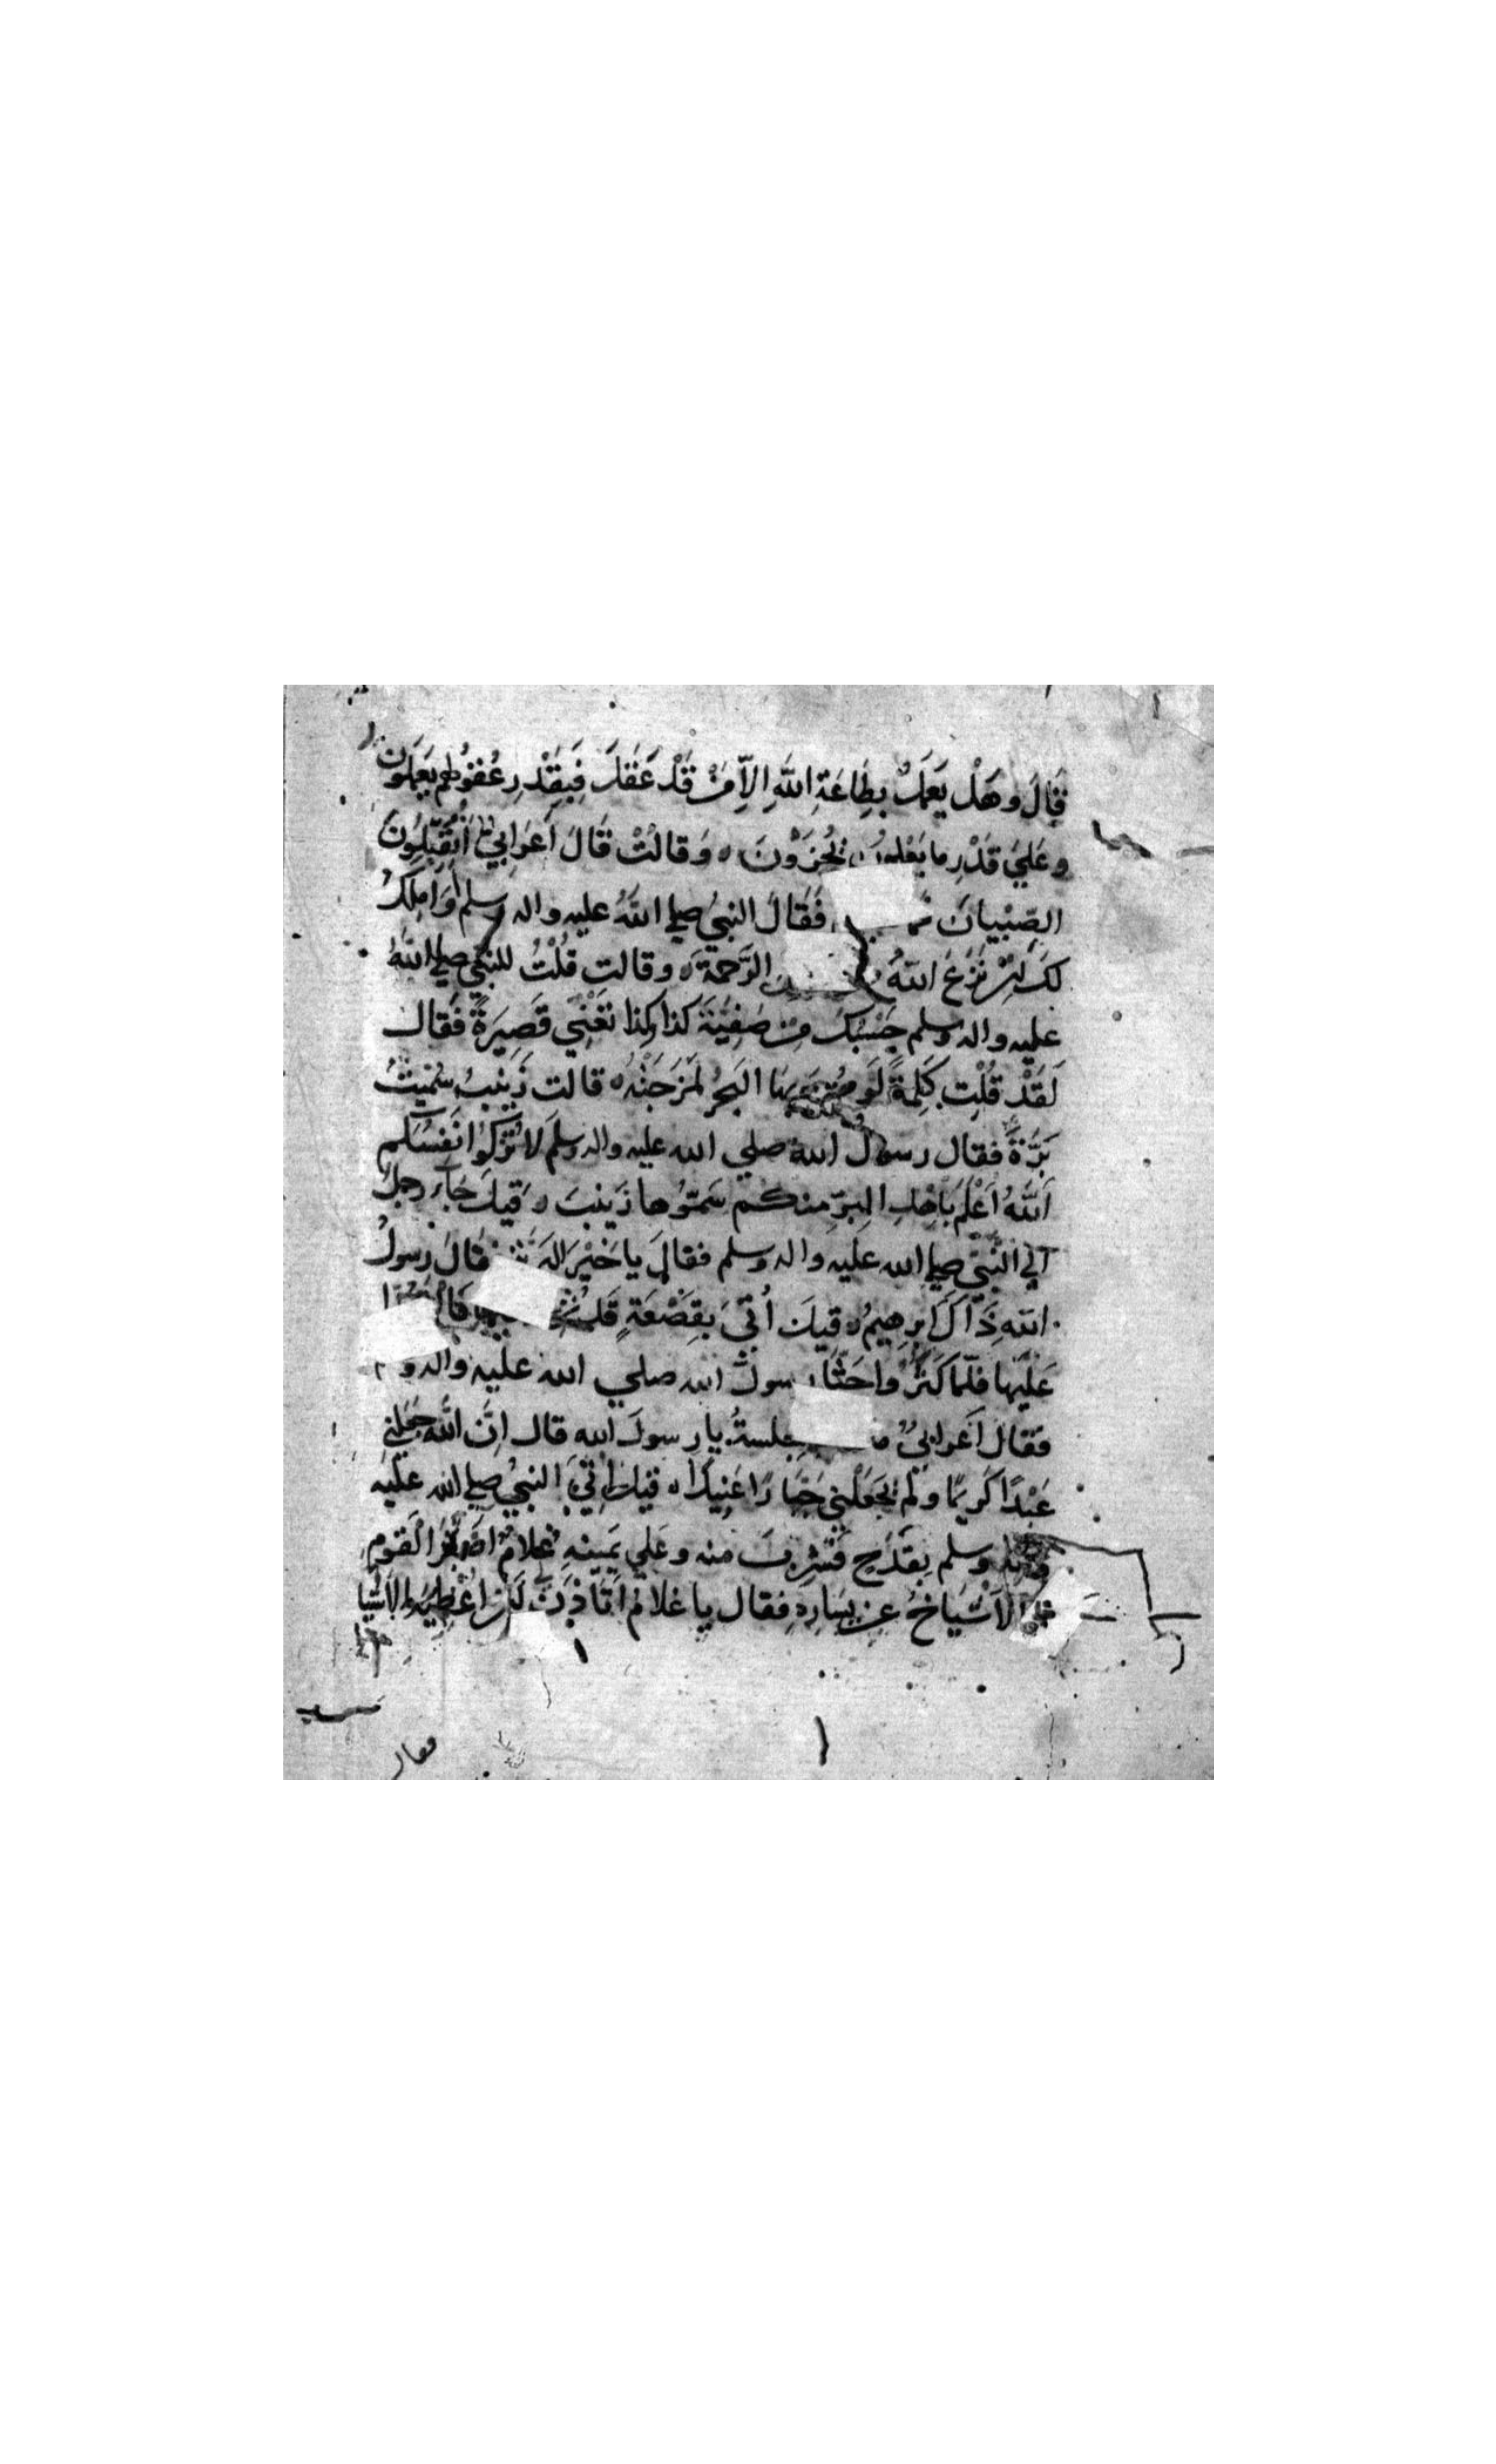 قَالَ وهَلْ يَعمَلُ بِطَاعَةِ اللّٰهِ اِلاّ مَنْ قَدْ عَقَلَ فَبِقَدْرِ عُقُولِهم يَعمَلُونَ
وعَلي قَدْرِ ما يَعْملونَ يُجزَوْنَ ه وَقالَتْ قَالَ اَعرَابيٌّ اَتُقَبِّلُونَ
الصِّبْيانَ فَقَالَ النبيُ صلي اللّٰهُ عليه واله وسلم أوَاملِكُ
لَكَ اَنْ نَزَعَ اللّٰهُ الرَّحمةَ ه وقالت قُلْتُ للنبيّ صلي اللّٰهُ
عليه واله وسلم حَسْبُكَ مِنْ صَفِيَّةَ كذا وكذا تَعْني قَصِيرَةً فَقال
لَقَدْ قُلْتِ كَلِمَةً لَو بِهَا البَحرُ لَمَزَجَتْهُ ه قالت زَينبُ سُمّيتُ
بَرَّةَ فقال رسولُ اللّٰه صلي الله عليه واله وسلم لا تُزَكّوا انفُسَكم
اللّٰهُ اَعْلَمُ باَهْلِ البِرّ منكم سَمّوها زَينَبَ ه قيلَ جَآءَ رجلٌ
اَلي النَّبيّ صلي الله عليه واله وسلم فقال يا خَيْرَ قَالَ رَسولُ
اللّٰه ذَاكَ اِبرهيمُ ه قيلَ اُتيَ بِقَصْعَةٍ
عَلَيْها فلَمّا كَثُرُوا جَثَا رسولُ الله صلي الله عليه واله و
فقال اَعرابيٌّ جِلسةُ يا رسولَ الله قال اِنَّ اللّٰهَ جعلني
عَبْدًا كَريمًا ولم يَجعَلْني جَبّارًا عَنيدًا ه قيل اُتيَ النبيُ صلي الله عليه
واله وسلم بِقَدَحٍ فَشَرِبَ منه وعَلي يَمينِهِ غُلامٌ اَصْغَرُ القَومِ
الاَشْيَاخُ عن يسَارهِ فقال يا غلامُ اَتَأذَنُ لي اَنْ اُعْطِيَهُ الاَشيَا